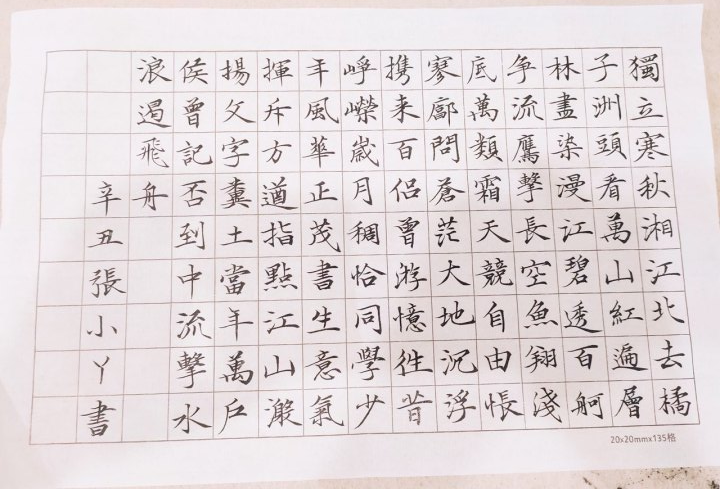 獨立寒秋湘江北去橘
子洲頭看萬山紅遍層
林盡染漫江碧透百舸
争流鷹擊長空魚翔淺
底萬類霜天競自由悵
寥廓問蒼茫大地沉浮
携来百侣曾游憶往昔
崢嶸歲月稠恰同學少
年風華正茂書生意氣
揮斥方遒指點江山激
揚文字糞土當年萬戶
侯曾記否到中流擊水
浪遏飛舟
辛丑張小丫書
20x20mmx135格